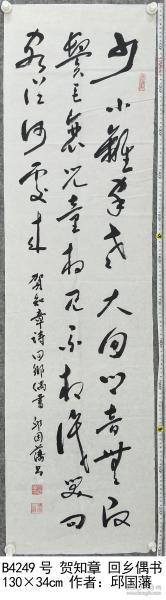 少小離家老大回乡音無改
鬢毛衰兒童相見不相識笑问
客従何處来
賀知章詩回鄉偶書 邱国藩书
B4249号 贺知章 回乡偶书
130×34cm 作者：邱国藩